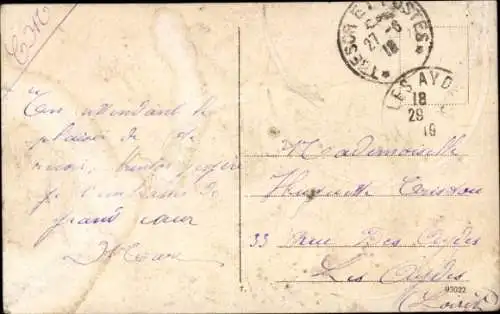 F.M.
TRESOR ET POSTES
27-6
18
LES AYD
18
29
En attendant le
plaisir de te
revoir, bientôt j'espère
je t'embrasse de
grand cœur
Mademoiselle
Huguette
33 Rue Des Aydes
Les Aydes
Loiret
T.
93022